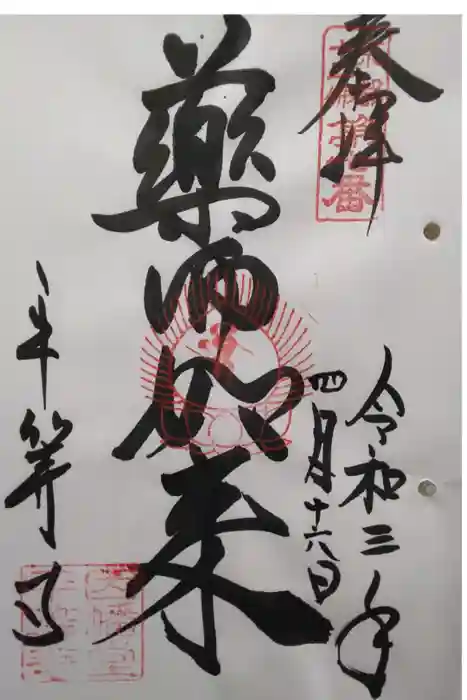 奉拝
令和三年
四月十六日
薬師如来
平等寺